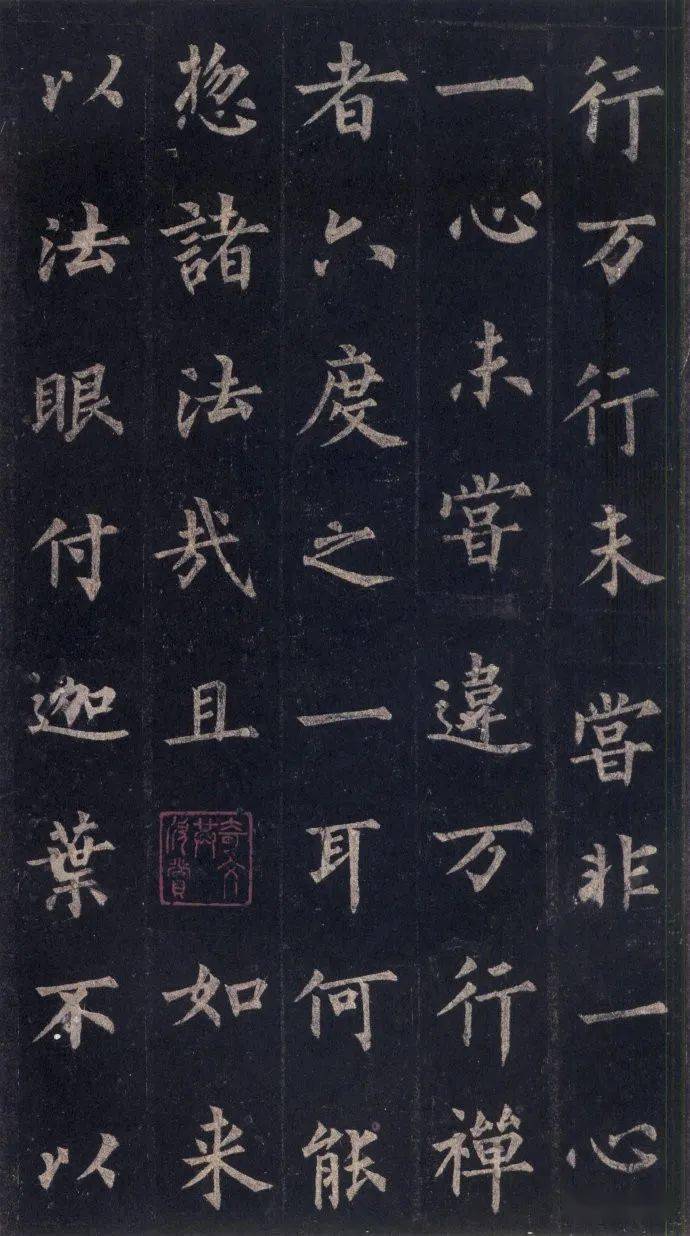 行万行未甞非一心
一心未甞違万行禪
者六度之一耳何能
揔諸法㢤且如来
以法眼付迦葉不以
奇文共欣賞